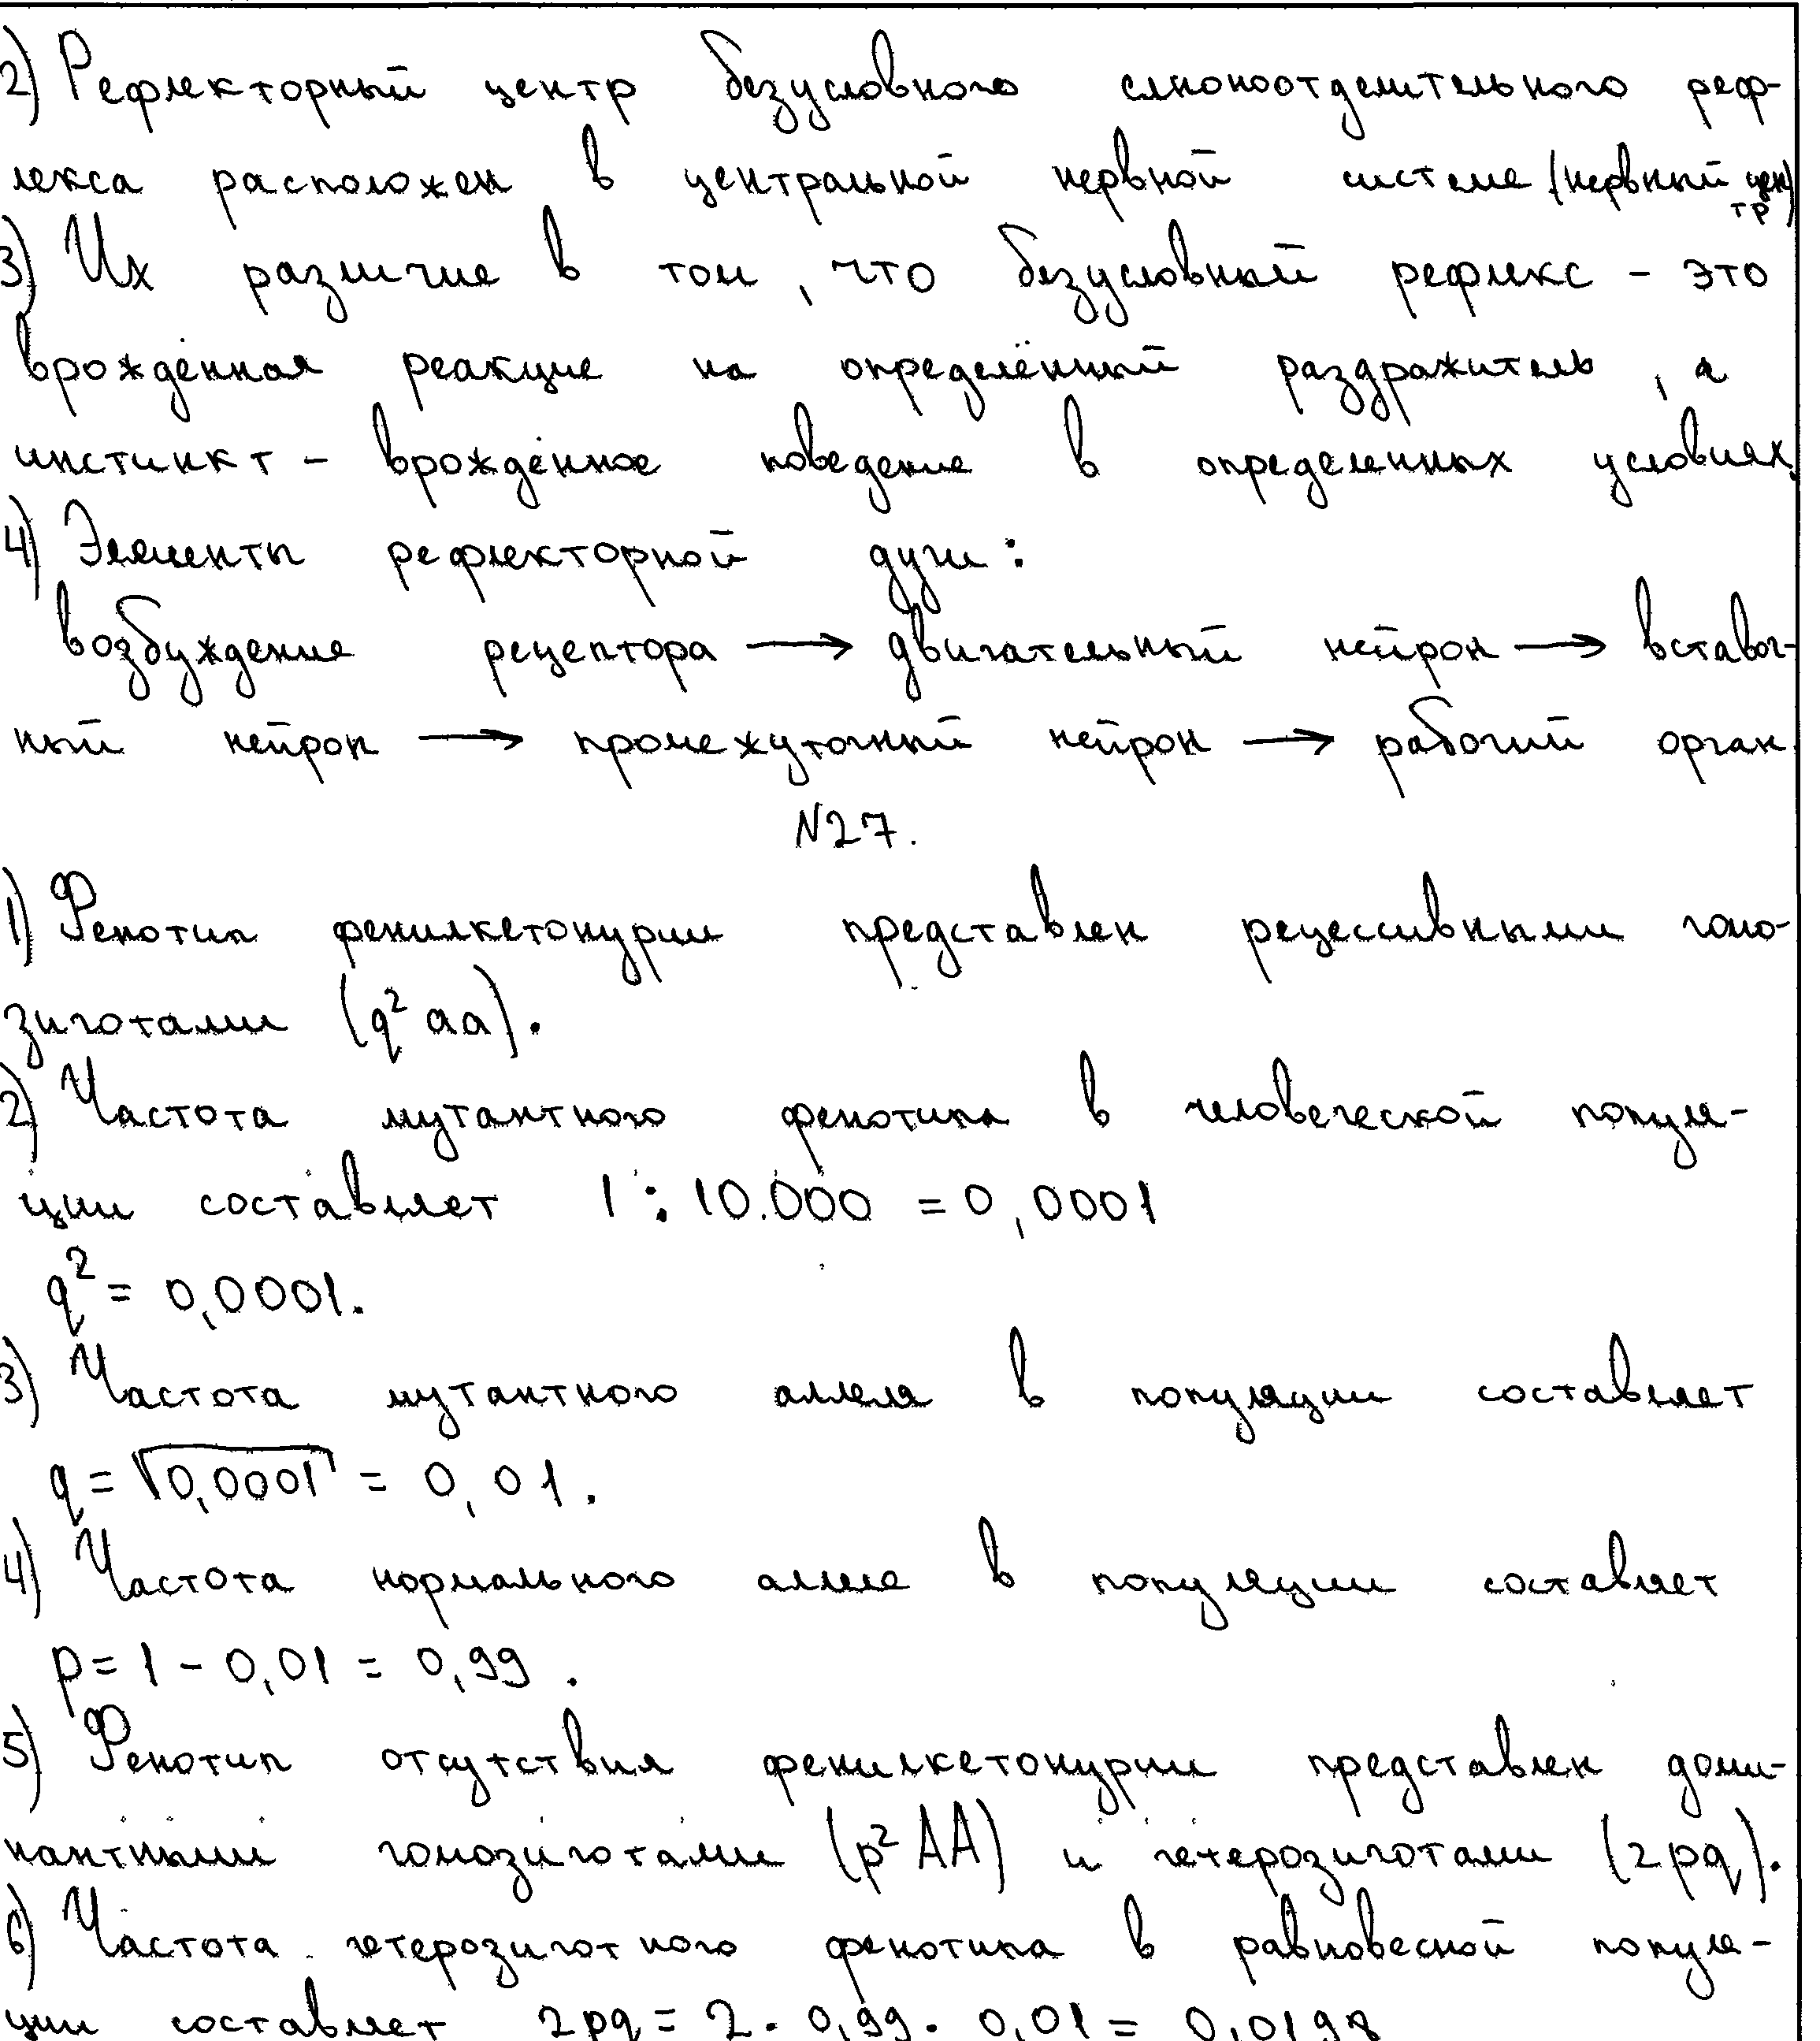 2) Рефлекторный центр безусловного слюноотделительного реф-
лекса расположен в центральной нервной системе (нервный центр)
3) Их различие в том, что безусловный рефлекс - это
врождённая реакция на определённый раздражитель, а
инстинкт - врождённое поведение в определенных условиях.
4) Элементы рефлекторной дуги:
возбуждение рецептора → двигательный нейрон → вставоч-
ный нейрон → промежуточный нейрон → рабочий орган.
№27.
1) Фенотип фенилкетонурии представлен рецессивными гомо-
зиготами (q² aa).
2) Частота мутантного фенотипа в человеческой популя-
ции составляет 1 : 10.000 = 0,0001
q² = 0,0001.
3) Частота мутантного аллеля в популяции составляет
q = √0,0001 = 0,01.
4) Частота нормального аллеля в популяции составляет
p = 1 - 0,01 = 0,99.
5) Фенотип отсутствия фенилкетонурии представлен доми-
нантными гомозиготами (p² AA) и гетерозиготами (2pq).
6) Частота гетерозиготного фенотипа в равновесной популя-
ции составляет 2pq = 2 · 0,99 · 0,01 = 0,0198